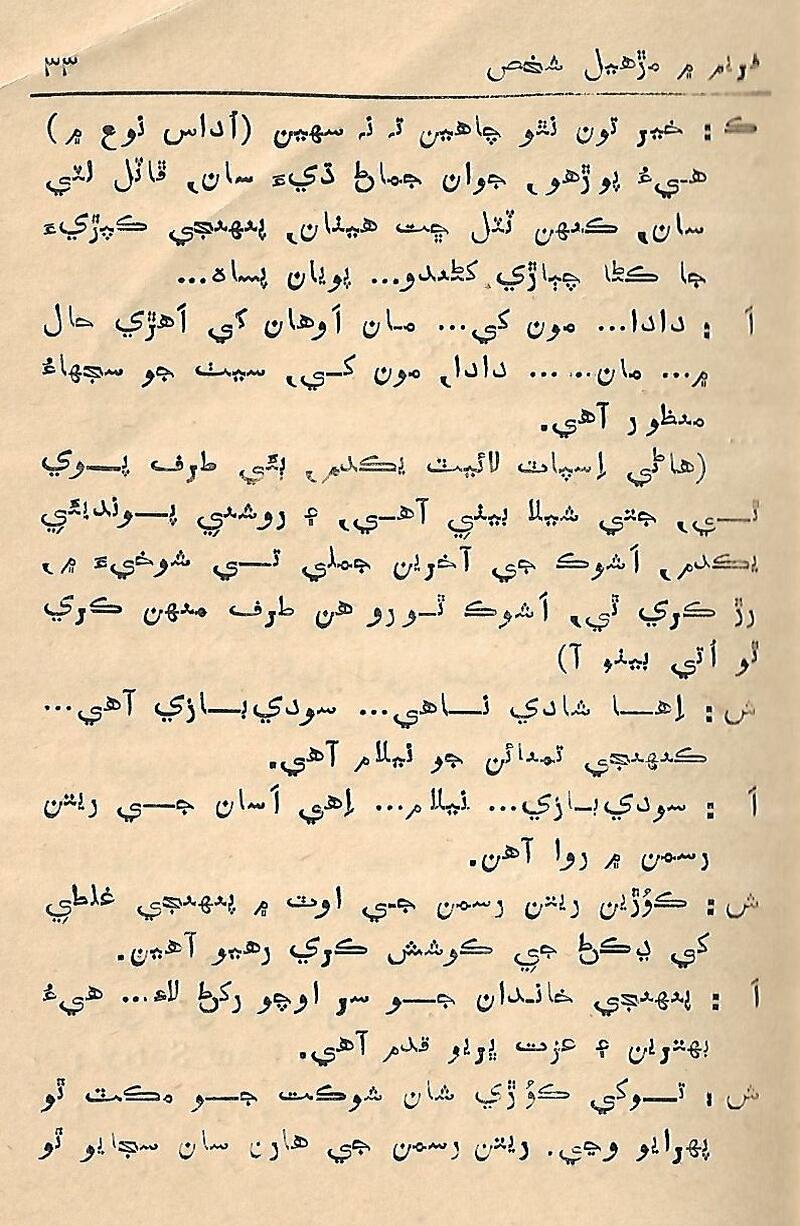 فريم ۾ مڙهيل شخص ٣٣
ڪ : خير تون نٿو چاهين ته نه سهين (اُداس نوع ۾)
هيءُ پوڙهو, جوان جماڻ ڌيءَ سان, ڦاٽل لٽي
سان, ڪنهن ٽٽل ڇت هيٺان, پنهنجي ڪپڙيءَ
جا ڪڻا چٻاڙي کڻندو... پويان پساه...
اَ : دادا... مون کي... مان اَوهان کي اَهڙي حال
۾... مان... ... دادا, مون کي, سيٺ جو سڃهاءُ
منظور آهي.
(هاڻي اِسپاٽ لائيٽ يڪدم, ٻئي طرف پوي
ٿي, جتي شيلا بيٺي آهي, ۽ روشني پوندي‌ئي
يڪدم, اَشوڪ جي آخرين جملي تي شوخيءَ ۾,
رڙ ڪري ٿي, اَشوڪ ٿورو هن طرف منهن ڪري
ٿو اُتي بيٺو آ)
ش : اِها شادي ناهي... سودي‌بازي آهي...
ڪنهنجي تمنائن جو نيلام آهي.
اَ : سودي‌بازي... نيلام... اِهي اَسان جي ريتن
رسمن ۾ روا آهن.
ش : ڪوُڙين ريتن رسمن جي اوٽ ۾ پنهنجي غلطي
کي ڍڪڻ جي ڪوشش ڪري رهيو آهين.
اَ : پنهنجي خاندان جو سر اوچو رکڻ لاءِ... هيءُ
بهترين ۽ عزت ڀريو قدم آهي.
ش : توکي ڪوُڙي شان شوڪت جو مڪٽ ٿو
پهرايو وڃي. ريتن رسمن جي هارن سان سجايو ٿو